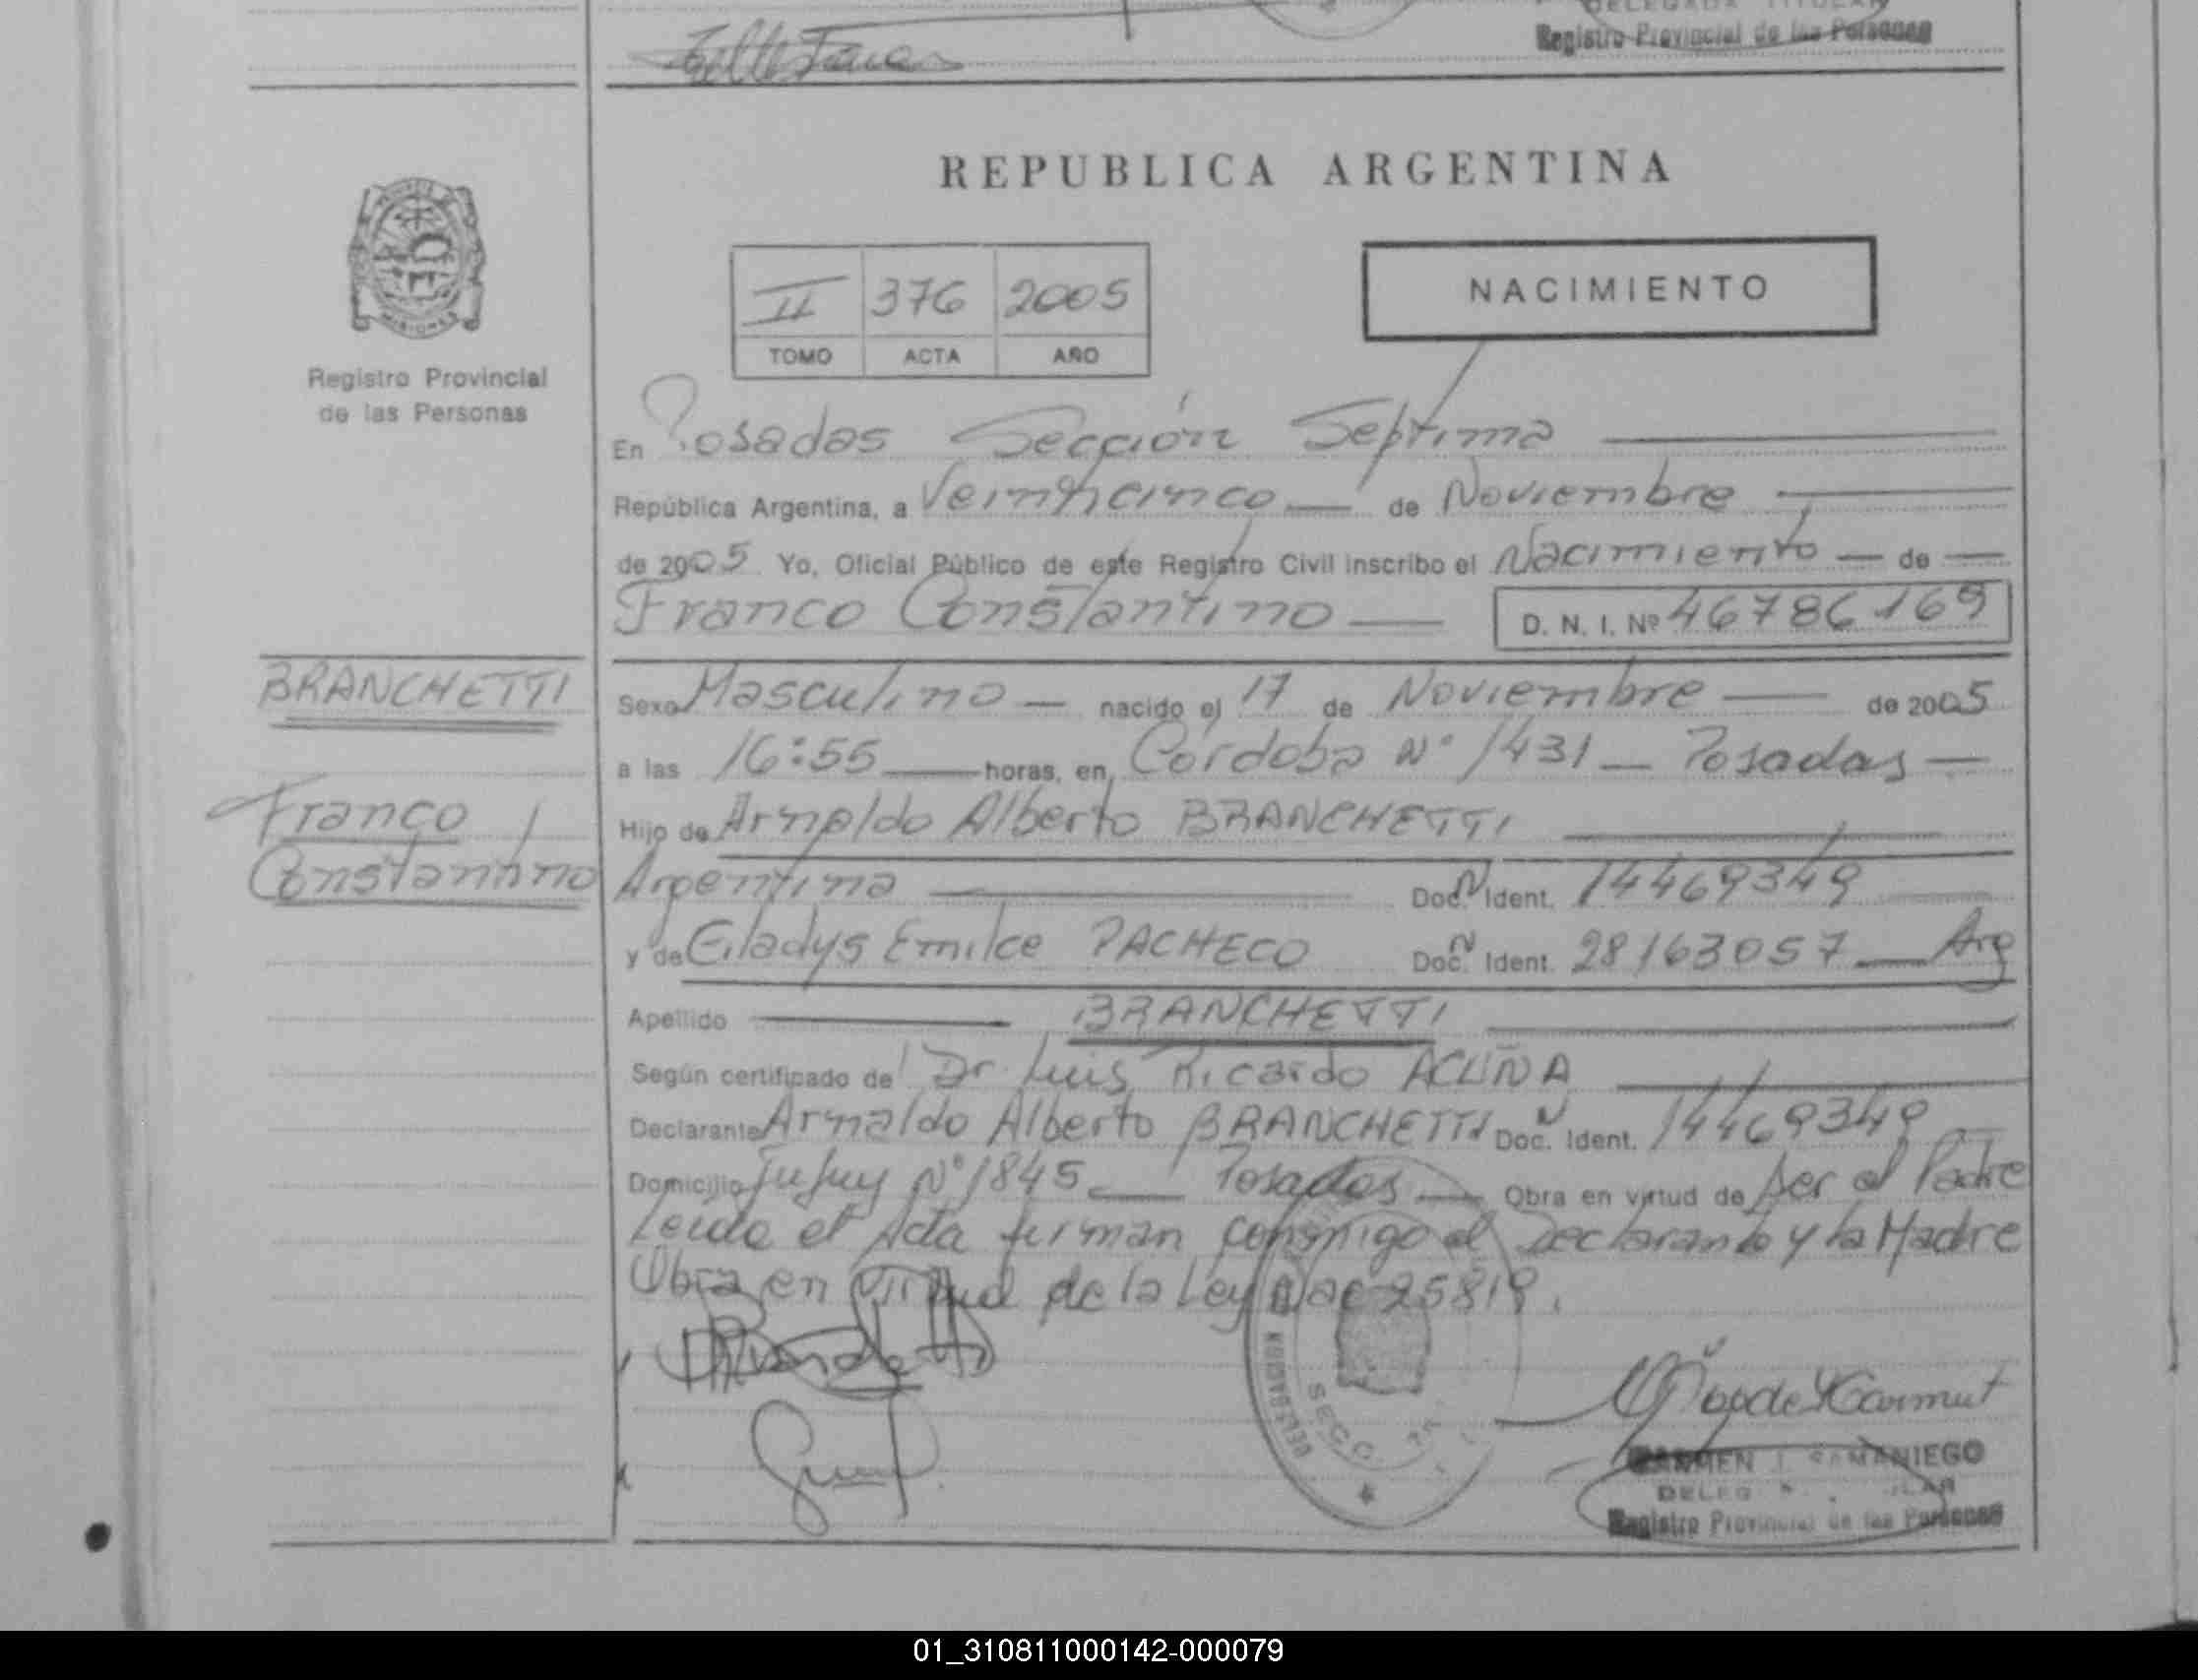 DELEGADA TITULAR
Registro Provincial de las Personas
REPUBLICA ARGENTINA
MISIONES
Registro Provincial
de las Personas
II 376 2005
TOMO ACTA AÑO
NACIMIENTO
En Posadas Sección Septima
República Argentina, a Veinticinco de Noviembre
de 2005 Yo, Oficial Público de este Registro Civil inscribo el Nacimiento de
Franco Constantino D. N. I. Nº 46786169
BRANCHETTI
Franco
Constantino
Sexo Masculino nacido el 17 de Noviembre de 2005
a las 16:55 horas, en Córdoba Nº 1431 - Posadas
Hijo de Arnaldo Alberto BRANCHETTI
Argentina Doc. N Ident. 14469349
y de Gladys Emilce PACHECO Doc. N Ident. 28163057 Arg
Apellido BRANCHETTI
Según certificado de Dr. Luis Ricardo ACUÑA
Declarante Arnaldo Alberto BRANCHETTI Doc. N Ident. 14469349
Domicilio Jujuy Nº 1845 Posadas Obra en virtud de ser el Padre
Leida el Acta firman conmigo el Declarante y la Madre
Obra en virtud de la Ley Nac 25819.
SECC.
CARMEN I. SAMANIEGO
Registro Provincial de las Personas
01_310811000142-000079